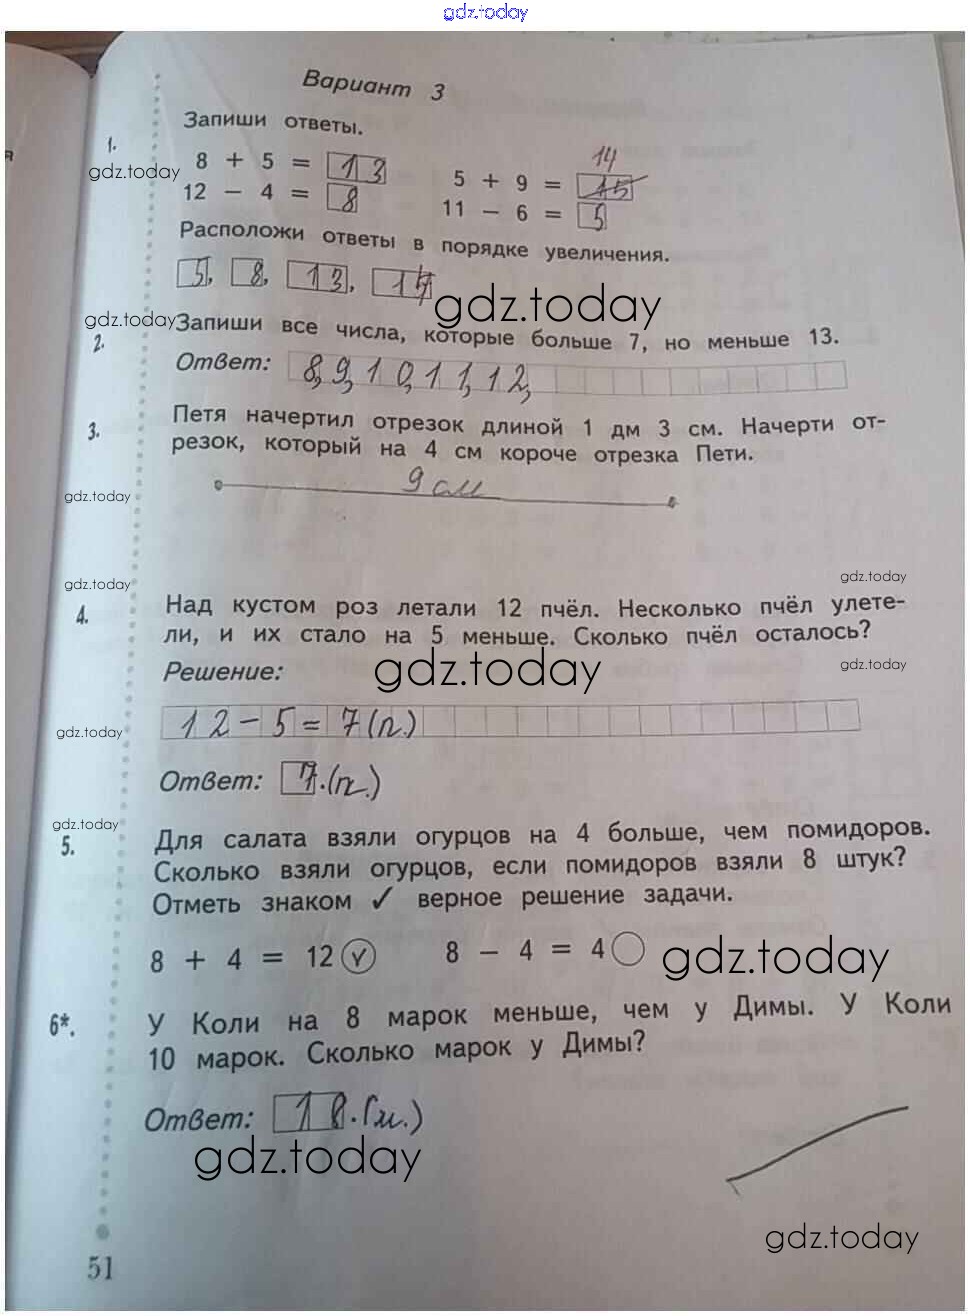 gdz.today
Вариант 3
1.
Запиши ответы.
8 + 5 = 13
14
5 + 9 = 15
gdz.today
12 - 4 = 8
11 - 6 = 5
Расположи ответы в порядке увеличения.
5, 8, 13, 14
gdz.today
gdz.today
2.
Запиши все числа, которые больше 7, но меньше 13.
Ответ: 8, 9, 10, 11, 12,
3.
Петя начертил отрезок длиной 1 дм 3 см. Начерти от-
резок, который на 4 см короче отрезка Пети.
9 см
gdz.today
gdz.today
gdz.today
4.
Над кустом роз летали 12 пчёл. Несколько пчёл улете-
ли, и их стало на 5 меньше. Сколько пчёл осталось?
Решение:
gdz.today
gdz.today
gdz.today
12 - 5 = 7 (п.)
Ответ: 7.(п.)
gdz.today
5.
Для салата взяли огурцов на 4 больше, чем помидоров.
Сколько взяли огурцов, если помидоров взяли 8 штук?
Отметь знаком ✓ верное решение задачи.
8 + 4 = 12 ✓ 8 - 4 = 4
gdz.today
6*.
У Коли на 8 марок меньше, чем у Димы. У Коли
10 марок. Сколько марок у Димы?
Ответ: 18.(м.)
gdz.today
gdz.today
51